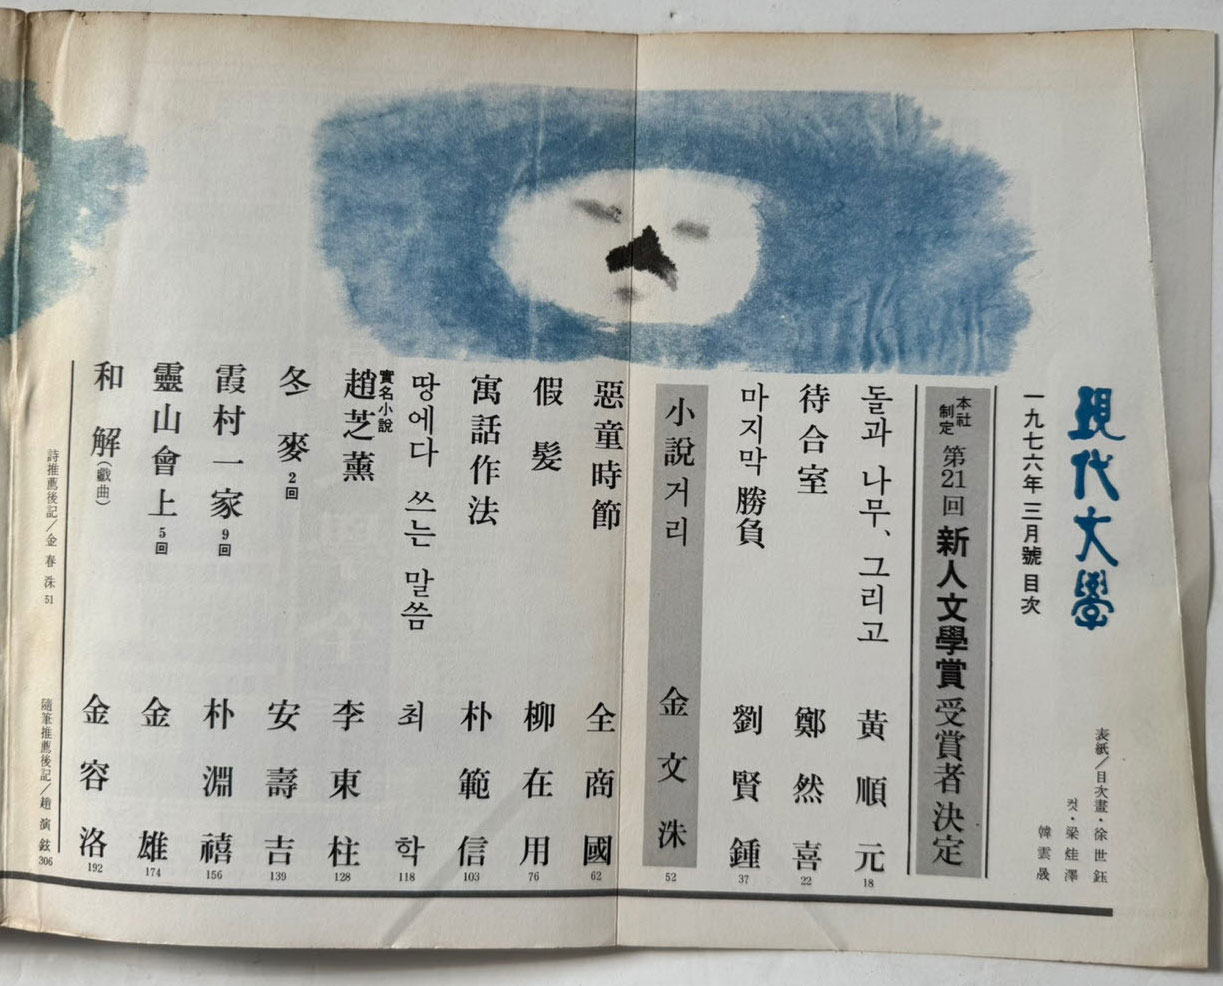 現代文學
一九七六年三月號 目次
表紙／目次畫・徐世鈺
컷・梁烓澤
韓雲晟
本社制定 第21回 新人文學賞 受賞者 決定
돌과 나무、그리고 黃順元 18
待合室 鄭然喜 22
마지막 勝負 劉賢鍾 37
小說거리 金文洙 52
惡童時節 全商國 62
假髮 柳在用 76
寓話作法 朴範信 103
땅에다 쓰는 말씀 최학 118
實名小說 趙芝薰 李東柱 128
冬麥 2回 安壽吉 139
霞村一家 9回 朴淵禧 156
靈山會上 5回 金雄 174
和解(戱曲) 金容洛 192
詩推薦後記／金春洙 51
隨筆推薦後記／趙演鉉 306